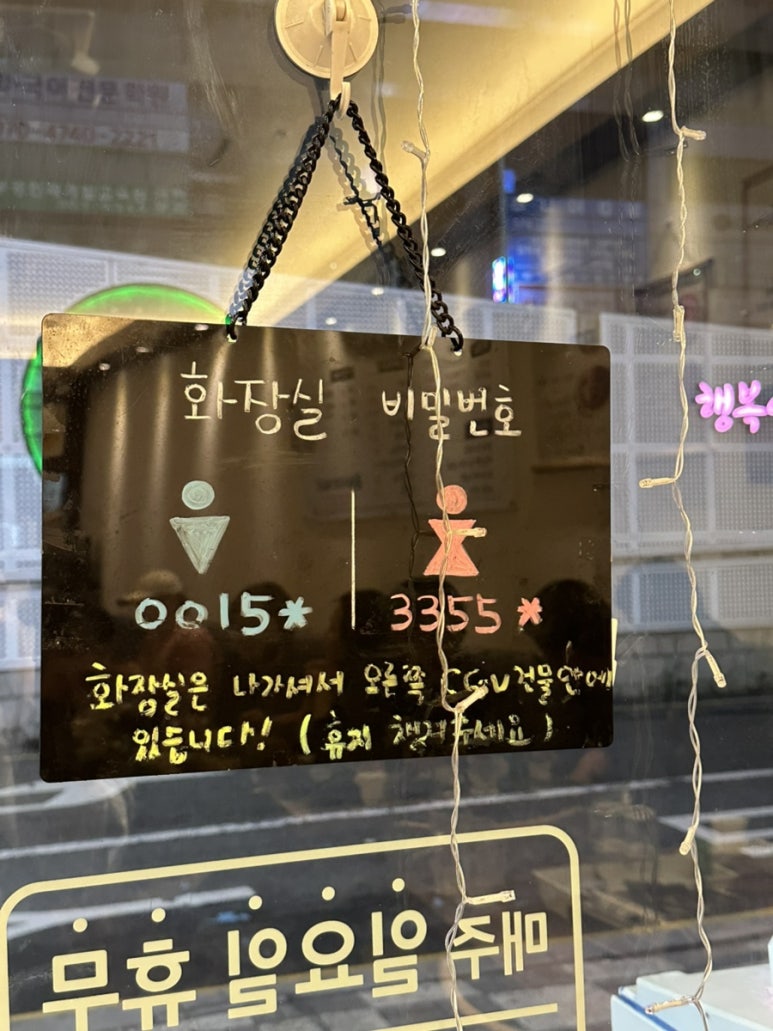 화장실 비밀번호
0015* 3355*
화장실은 나가셔서 오른쪽 CGV 건물 안에
있습니다! (휴지 챙겨주세요)
행복
매주 일요일 휴무